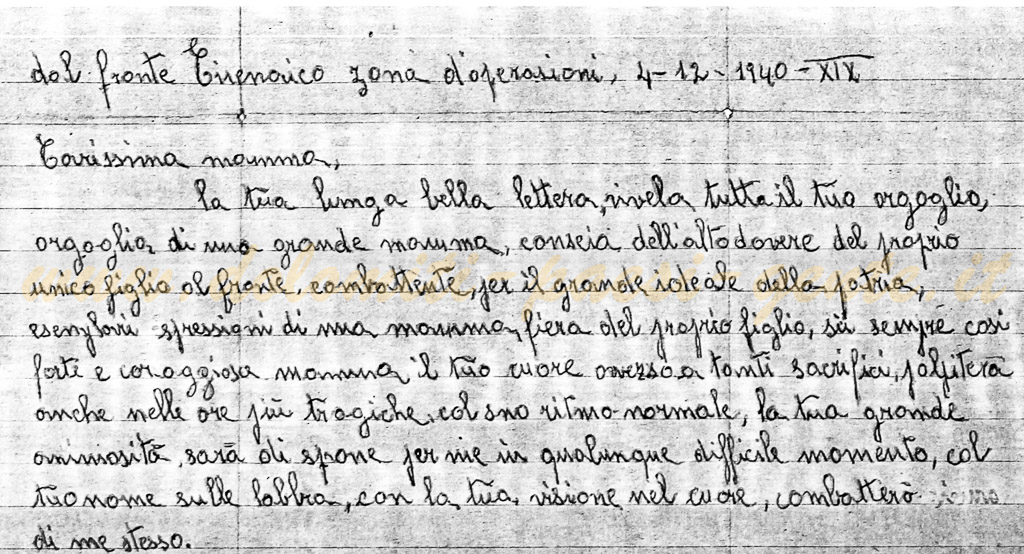 dal fronte Cirenaico zona d'operasioni, 4-12-1940-XIX
Carissima mamma,
la tua lunga bella lettera, rivela tutta il tuo orgoglio,
orgoglio di una grande mamma, conscia dell'alto dovere del proprio
unico figlio al fronte, combattente, per il grande ideale della patria,
esemplari spressioni di una mamma, fiera del proprio figlio, sii sempre cosi
forte e coraggiosa mamma, il tuo cuore avezzo a tanti sacrifici, palpiterà
anche nelle ore più tragiche, col suo ritmo normale, la tua grande
animosità, sarà di sprone per me in qualunque difficile momento, col
tuo nome sulle labbra, con la tua, visione nel cuore, combatterò
di me stesso.